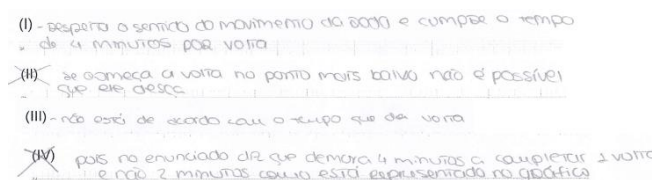 (I) - respeita o sentido do movimento da roda e cumpre o tempo
de 4 minutos por volta
(II) se começa a volta no ponto mais baixo não é possível
que ele desça
(III) - não está de acordo com o tempo que da volta
(IV) pois no enunciado diz que demora 4 minutos a completar 1 volta
e não 2 minutos como está representado no gráfico